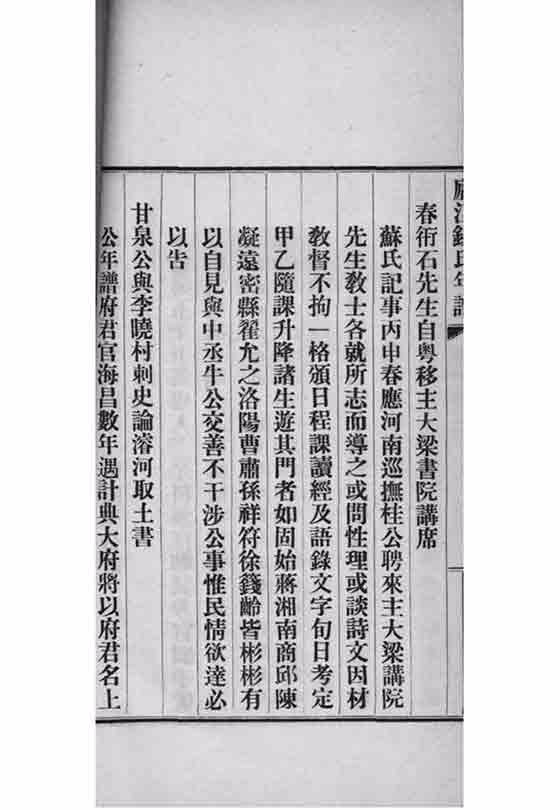 廬江錢氏年譜
春衎石先生自粵移主大梁書院講席
蘇氏記事丙申春應河南巡撫桂公聘來主大梁講院
先生敎士各就所志而導之或問性理或談詩文因材
敎督不拘一格頒日程課讀經及語錄文字旬日考定
甲乙隨課升降諸生遊其門者如固始蔣湘南商邱陳
凝遠密縣翟允之洛陽曹肅孫祥符徐籛齡皆彬彬有
以自見與中丞牛公交善不干涉公事惟民情欲達必
以告
甘泉公與李曉村刺史論濬河取土書
公年譜府君官海昌數年遇計典大府將以府君名上